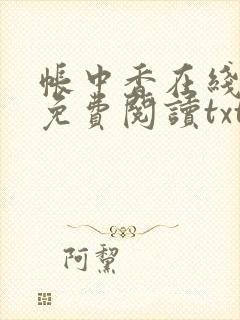 帳中香在綫
免費閱讀txt
阿黧